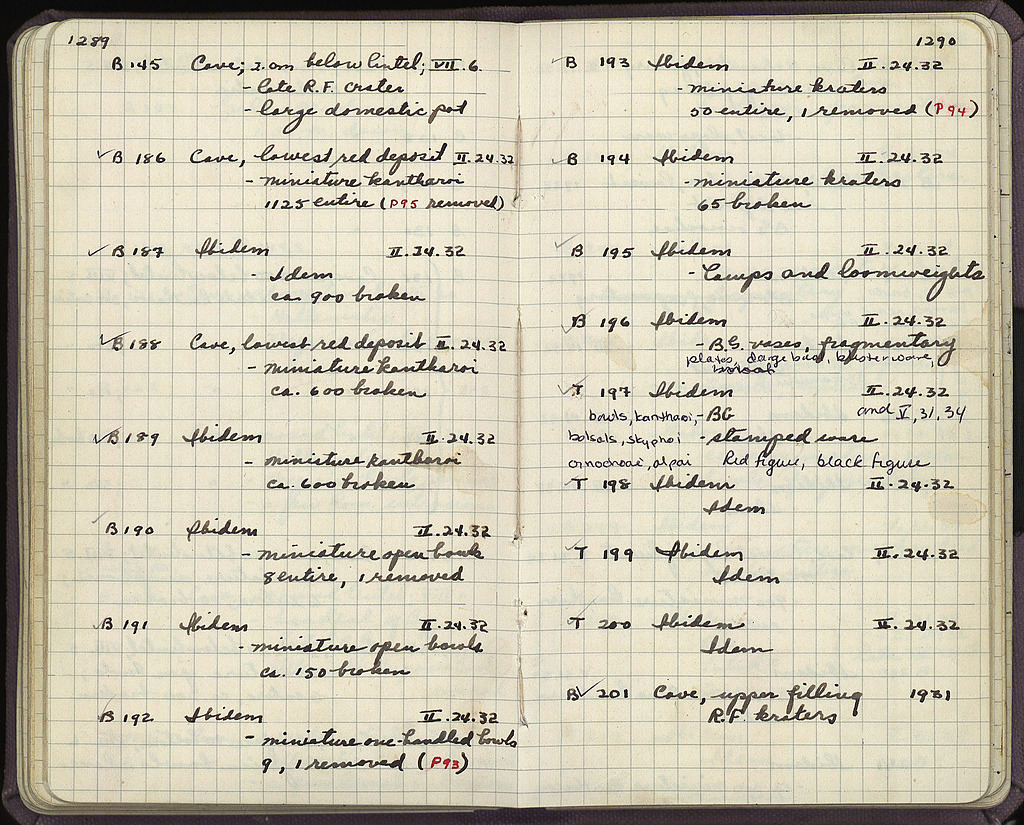 1289
B 145 Cave; 2.0m below lintel; VII.6.
- late R.F. crater
- large domestic pot
✓B 186 Cave, lowest red deposit II.24.32
- miniature kantharoi
1125 entire (P95 removed)
✓B 187 Ibidem II.24.32
- Idem
ca. 900 broken
✓B 188 Cave, lowest red deposit II.24.32
- miniature kantharoi
ca. 600 broken
✓B 189 Ibidem II.24.32
- miniature kantharoi
ca. 600 broken
✓B 190 Ibidem II.24.32
- miniature open bowls
8 entire, 1 removed
B 191 Ibidem II.24.32
- miniature open bowls
ca. 150 broken
B 192 Ibidem II.24.32
- miniature one-handled bowls
9, 1 removed (P93)
1290
B 193 Ibidem II.24.32
- miniature kraters
50 entire, 1 removed (P94)
B 194 Ibidem II.24.32
- miniature kraters
65 broken
✓B 195 Ibidem II.24.32
- Lamps and loomweights
✓B 196 Ibidem II.24.32
- B.G. vases, fragmentary
plates, large bowl,
✓T 197 Ibidem II.24.32
bowls, kantharoi, - BG and V, 31, 34
bolsals, skyphoi - stamped ware
oinochoai, olpai Red figure, black figure
✓T 198 Ibidem II.24.32
Idem
✓T 199 Ibidem II.24.32
Idem
✓T 200 Ibidem II.24.32
Idem
B✓ 201 Cave, upper filling 1931
R.F. kraters